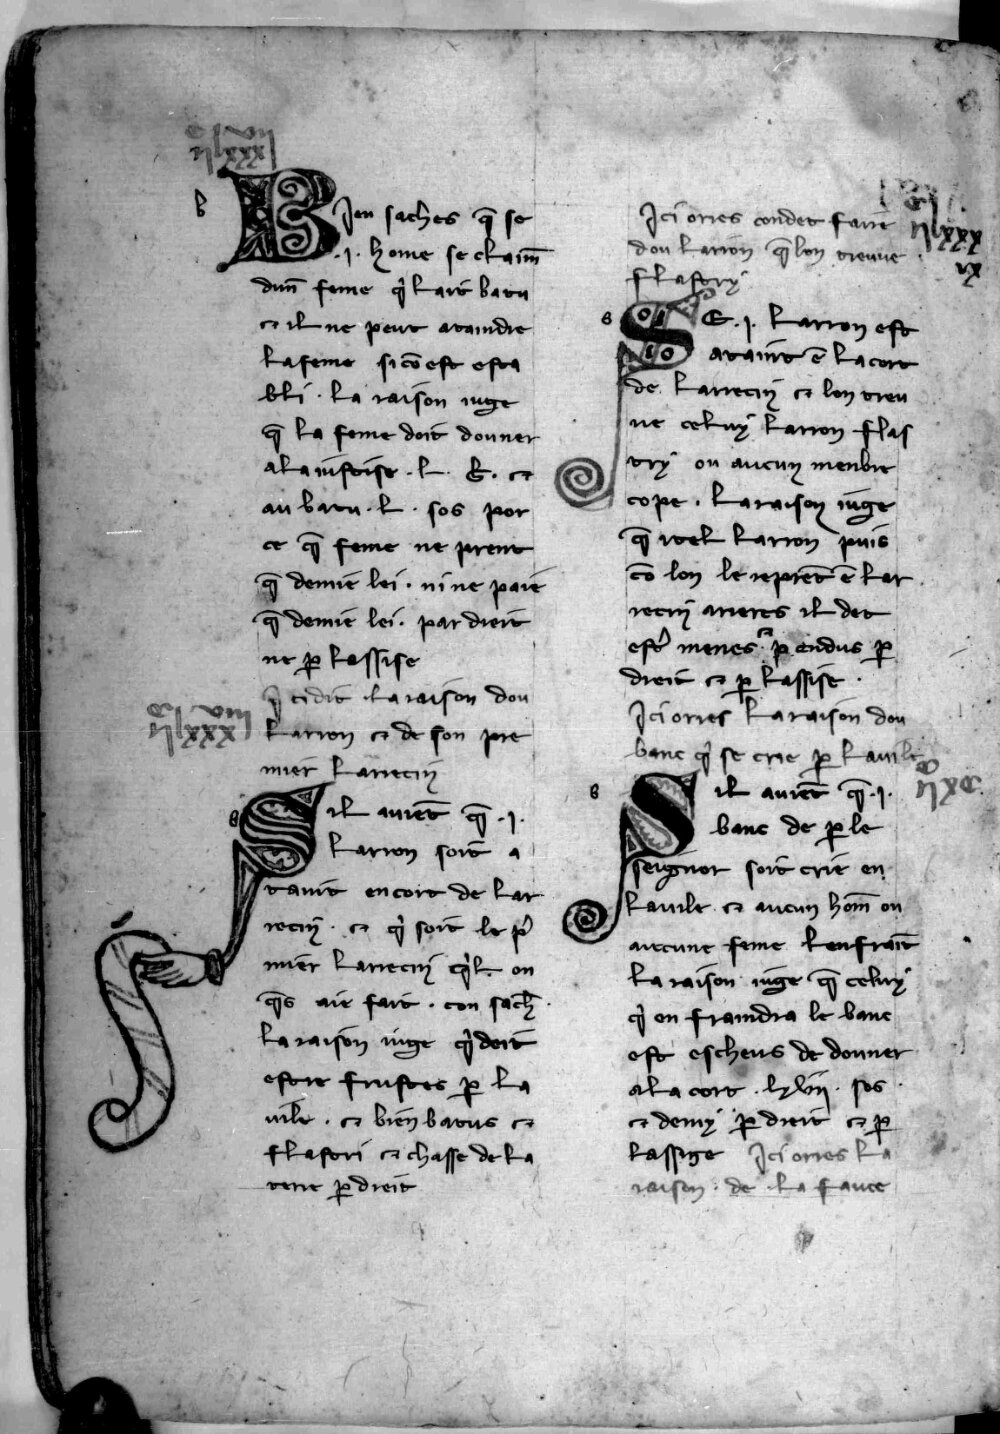 c̊ vii
ii lxxx
b
BIen saches q̄ se
.i. home se claim̄
dun̄ feme q̍ lait batu
⁊ il ne peut ataindre
la feme si cō est esta
bli . la raison iuge
q̄ la feme doit donner
a la iustise . l . b̄ . ⁊
au batu . l . sos por
ce q̄ feme ne prent
q̄ demie lei . ni ne paie
q̄ demie lei . par dreit
ne ꝑ lassise
Ici dit la raison dou
larron ⁊ de son pre
mier larrecin
viii
ii lxxx
s
SIl auiēt q̄ .i.
larron soit a
taint en cort de lar
recin . ⁊ q̍ soit le p̍
mier larrecin q̍l on
q̄s aie fait . con sach̄
la raison iuge q̍ deit
estre frustes ꝑ la
uile . ⁊ bien batus ⁊
flastri ⁊ chasse de la
terre ꝑ dreit
Ici orres con det faire
dou larron q̄ lon treuue
flastry
ii lxxx
ix
s
SE .i. larron est
ataint ē la cort
de larrecin ⁊ lon treu
ue celuy larron flas
try ou aucun menbre
cope . la raison iuge
q̄ itel larron puis
cō lon le reprēt ē lar
recin arieres il det
est̍ menes ⁊ pendus ꝑ
dreit ⁊ ꝑ lassise .
Ici orres la raison dou
banc q̍ se crie ꝑ la uile
ii xc
s
SIl auiēt q̄ .i.
banc de ꝑ le
seignor soit crie en
la uile ⁊ aucun hom̄ ou
auccune feme lenfrait
la raison iuge q̄ celuy
q̍ en fraindra le banc
est escheus de donner
a la cort . lxvii . sos .
⁊ demy ꝑ dreit ⁊ ꝑ
lassige Ici orres la
raison . de . la fauce